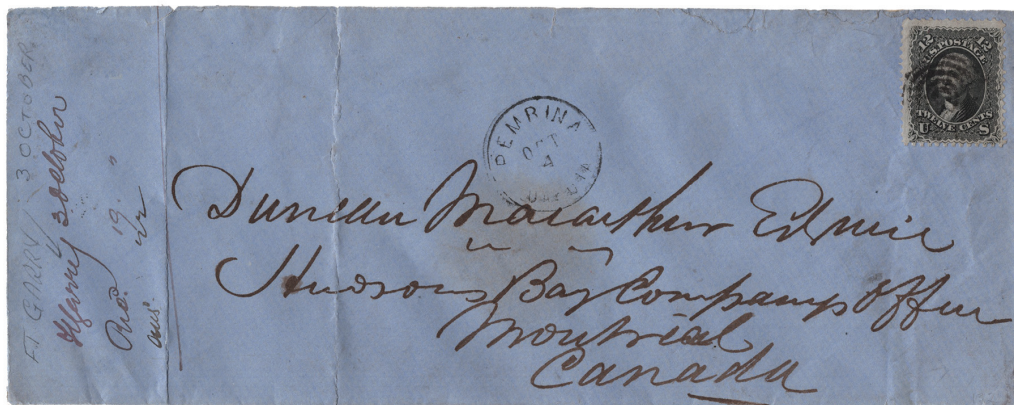 FT GARRY/ 3 OCTOBER
Ft Garry 3 October
Rec. 19 "
ans.
PEMBINA
OCT
4
12 12
U.S. POSTAGE
TWELVE CENTS
U S
Duncan Macarthur
Hudsons Bay Companys Office
Montreal
Canada